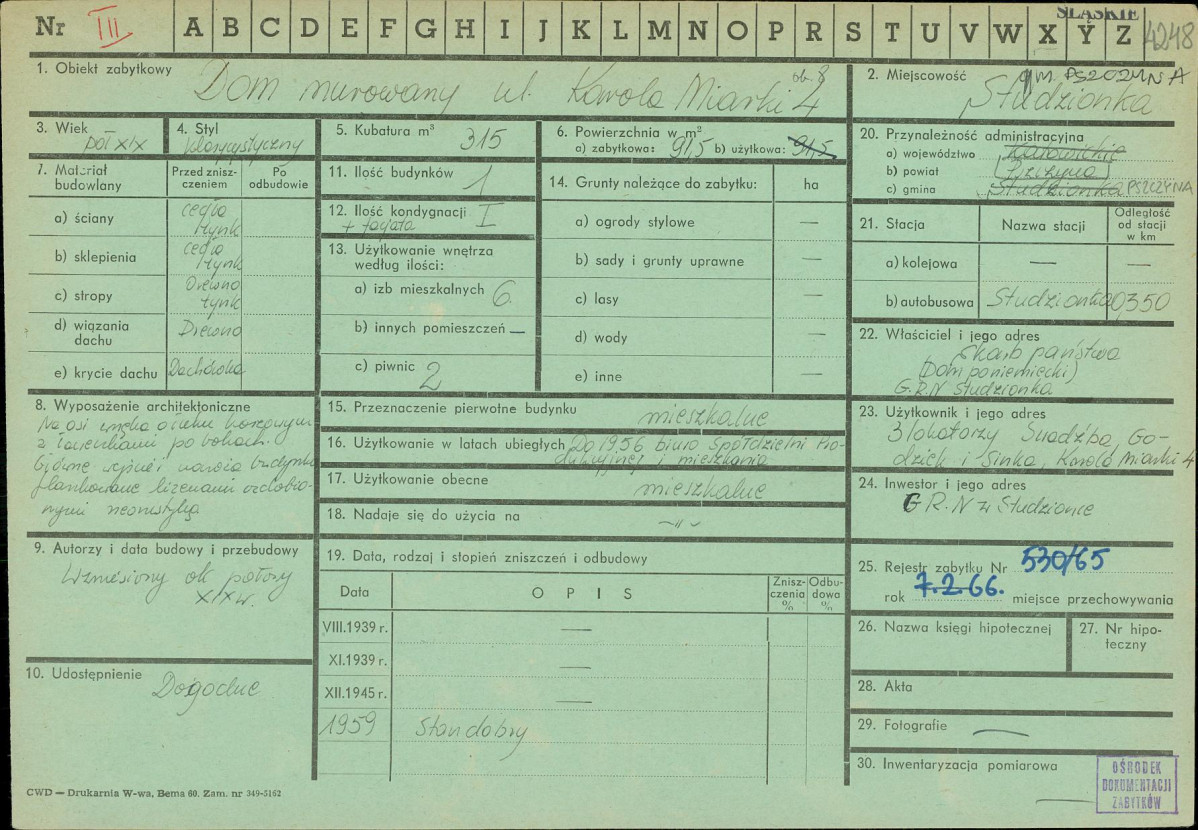 Nr III A B C D E F G H I J K L M N O P R S T U V W X Y Z 4248
ŚLĄSKIE
1. Obiekt zabytkowy
Dom murowany ul. Karola Miarki 4
ob. 8
2. Miejscowość
gm. PSZCZYNA
Studzionka
3. Wiek
poł XIX
4. Styl
klasycystyczny
5. Kubatura m³ 315
6. Powierzchnia w m²
a) zabytkowa: 91,5 b) użytkowa: 91,5
7. Materiał budowlany
Przed zniszczeniem
Po odbudowie
a) ściany
cegła
tynk
b) sklepienia
cegła
tynk
c) stropy
Drewno
tynk
d) wiązania dachu
Drewno
e) krycie dachu
Dachówka
8. Wyposażenie architektoniczne
Na osi wnęka o łuku koszowym
z ławeczkami po bokach.
Główne wejście i naroża budynku
flankowane lizenami ozdobio-
nymi
9. Autorzy i data budowy i przebudowy
Wzniesiony ok połowy
XIX w.
10. Udostępnienie
Dogodne
11. Ilość budynków 1
12. Ilość kondygnacji I
13. Użytkowanie wnętrza
według ilości:
a) izb mieszkalnych 6
b) innych pomieszczeń —
c) piwnic 2
14. Grunty należące do zabytku: ha
a) ogrody stylowe —
b) sady i grunty uprawne —
c) lasy —
d) wody —
e) inne —
15. Przeznaczenie pierwotne budynku
mieszkalne
16. Użytkowanie w latach ubiegłych Do 1956 biuro Spółdzielni Pro-
dukcyjnej i mieszkania
17. Użytkowanie obecne
mieszkalne
18. Nadaje się do użycia na —„—
19. Data, rodzaj i stopień zniszczeń i odbudowy
Data
OPIS
Zniszczenia %
Odbudowa %
VIII.1939 r. —
XI.1939 r. —
XII.1945 r. —
1959 Stan dobry
20. Przynależność administracyjna
a) województwo Katowickie
b) powiat Pszczyna
c) gmina Studzionka PSZCZYNA
21. Stacja
Nazwa stacji
Odległość od stacji w km
a) kolejowa — —
b) autobusowa Studzionka 0,350
22. Właściciel i jego adres
Skarb państwa
(Dom poniemiecki)
G.R.N Studzionka
23. Użytkownik i jego adres
3 lokatorzy Swadźba, Go-
dziek i Sinka, Karola Miarki 4
24. Inwestor i jego adres
G R.N w Studzionce
25. Rejestr zabytku Nr 530/65
rok 7.2.66. miejsce przechowywania
26. Nazwa księgi hipotecznej
27. Nr hipoteczny
28. Akta
29. Fotografie —
30. Inwentaryzacja pomiarowa
—
OŚRODEK
DOKUMENTACJI
ZABYTKÓW
CWD — Drukarnia W-wa, Bema 60. Zam. nr 349-5162